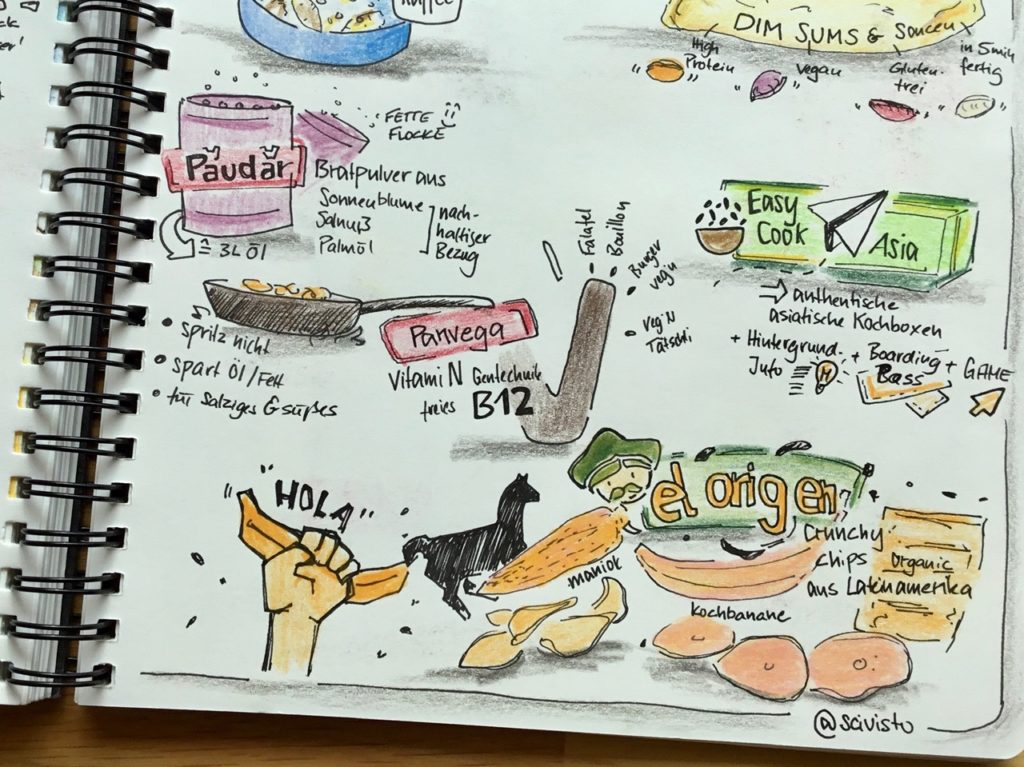 Kaffee
DIM SUMS & Soucen
High
Protein
vegan
Gluten-
frei
in 5min
fertig
FETTE
FLOCKE
Paudar
Bratpulver aus
Sonnenblume
Salnuß
Palmöl
nach-
haltiger
Bezug
= 3L Öl
Easy
Cook
Asia
→ authentische
asiatische Kochboxen
+ Hintergrund.
Info
+ Boarding
Pass
+ GAME
Falafel
Bouillon
Burger
veg'n
Veg'N
Tatsäti
• Spritz nicht
• spart Öl/Fett
• für salziges & süßes
Panvega
VitamiN
Gentechnik
freies
B12
"HOLA"
el origen
Crunchy
chips
aus Latinamerika
Organic
maniok
Kochbanane
@scivisto